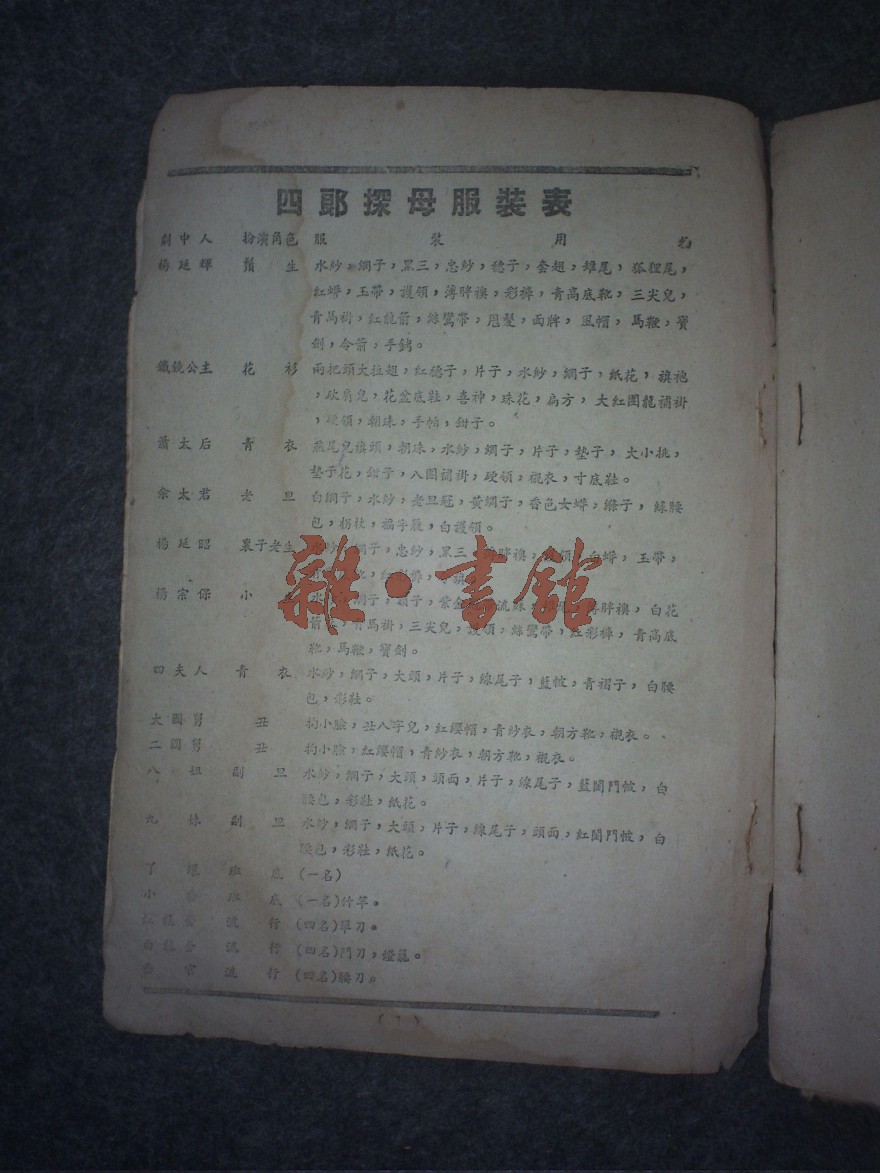 四郎探母服裝表
劇中人 扮演角色 服裝用
楊延輝 鬚生 水紗,網子,黑三,忠紗,穗子,套翅,雉尾,狐狸尾,
紅蟒,玉帶,護領,薄胖襖,彩褲,青高底靴,三尖兒,
青馬褂,紅龍箭,絲鸞帶,甩髮,面牌,風帽,馬鞭,寶
劍,令箭,手銬。
鐵鏡公主 花衫 兩把頭大拉翅,紅穗子,片子,水紗,網子,紙花,旗袍
,砍肩兒,花盆底鞋,喜神,珠花,扁方,大紅團龍補褂
,硬領,朝珠,手帕,鉗子。
蕭太后 青衣 燕尾兒旗頭,朝珠,水紗,網子,片子,墊子,大小挑,
墊子花,鉗子,八團補褂,硬領,襯衣,寸底鞋。
佘太君 老旦 白網子,水紗,老旦冠,黃綢子,香色女蟒,縧子,絲腰
包,拐杖,福字履,白護領。
楊延昭 裏子老生 水紗,網子,忠紗,黑三,胖襖,白蟒,玉帶,
楊宗保 小 網子,紫金 薄胖襖,白花
馬褂,三尖兒,護領,絲鸞帶,紅彩褲,青高底
靴,馬鞭,寶劍。
四夫人 青衣 水紗,網子,大頭,片子,線尾子,藍帔,青褶子,白腰
包,彩鞋。
大國舅 丑 抅小臉,丑八字兒,紅纓帽,青紗衣,朝方靴,襯衣。
二國舅 丑 抅小臉,紅纓帽,青紗衣,朝方靴,襯衣。
八姐 副旦 水紗,網子,大頭,頭面,片子,線尾子,藍閨門帔,白
腰包,彩鞋,紙花。
九妹 副旦 水紗,網子,大頭,片子,線尾子,頭面,紅閨門帔,白
腰包,彩鞋,紙花。
丫環 班底 (一名)
小 班底 (一名)竹竿。
紅龍套 流行 (四名)單刀。
白龍套 流行 (四名)門刀,燈籠。
官 流行 (四名)腰刀。
雜·書館